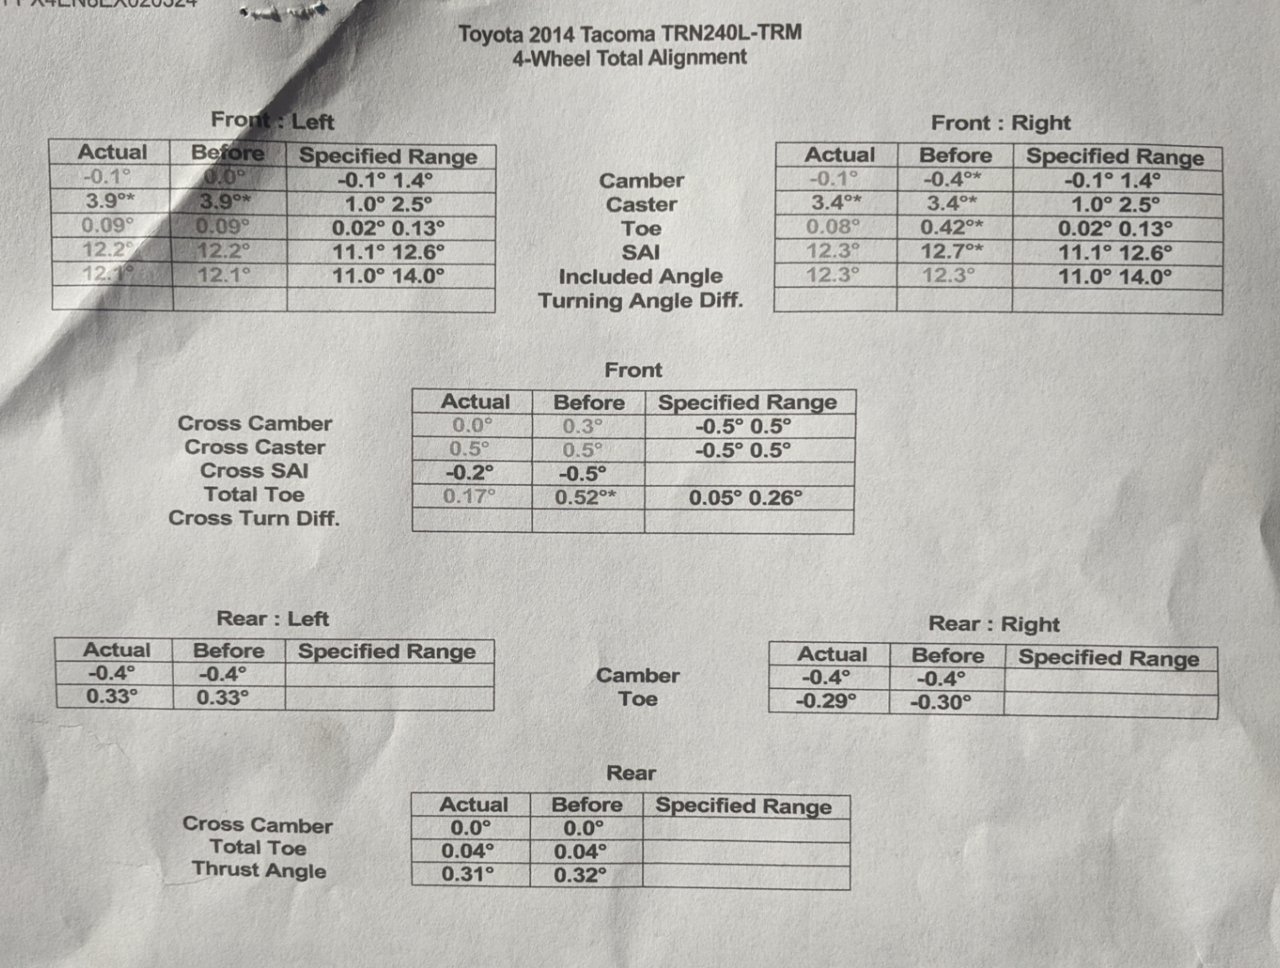 Toyota 2014 Tacoma TRN240L-TRM
4-Wheel Total Alignment
Front : Left
Actual Before Specified Range
-0.1° 0.0° -0.1° 1.4°
3.9°* 3.9°* 1.0° 2.5°
0.09° 0.09° 0.02° 0.13°
12.2° 12.2° 11.1° 12.6°
12.1° 12.1° 11.0° 14.0°
Camber
Caster
Toe
SAI
Included Angle
Turning Angle Diff.
Front : Right
Actual Before Specified Range
-0.1° -0.4°* -0.1° 1.4°
3.4°* 3.4°* 1.0° 2.5°
0.08° 0.42°* 0.02° 0.13°
12.3° 12.7°* 11.1° 12.6°
12.3° 12.3° 11.0° 14.0°
Front
Actual Before Specified Range
Cross Camber 0.0° 0.3° -0.5° 0.5°
Cross Caster 0.5° 0.5° -0.5° 0.5°
Cross SAI -0.2° -0.5°
Total Toe 0.17° 0.52°* 0.05° 0.26°
Cross Turn Diff.
Rear : Left
Actual Before Specified Range
-0.4° -0.4°
0.33° 0.33°
Camber
Toe
Rear : Right
Actual Before Specified Range
-0.4° -0.4°
-0.29° -0.30°
Rear
Actual Before Specified Range
Cross Camber 0.0° 0.0°
Total Toe 0.04° 0.04°
Thrust Angle 0.31° 0.32°